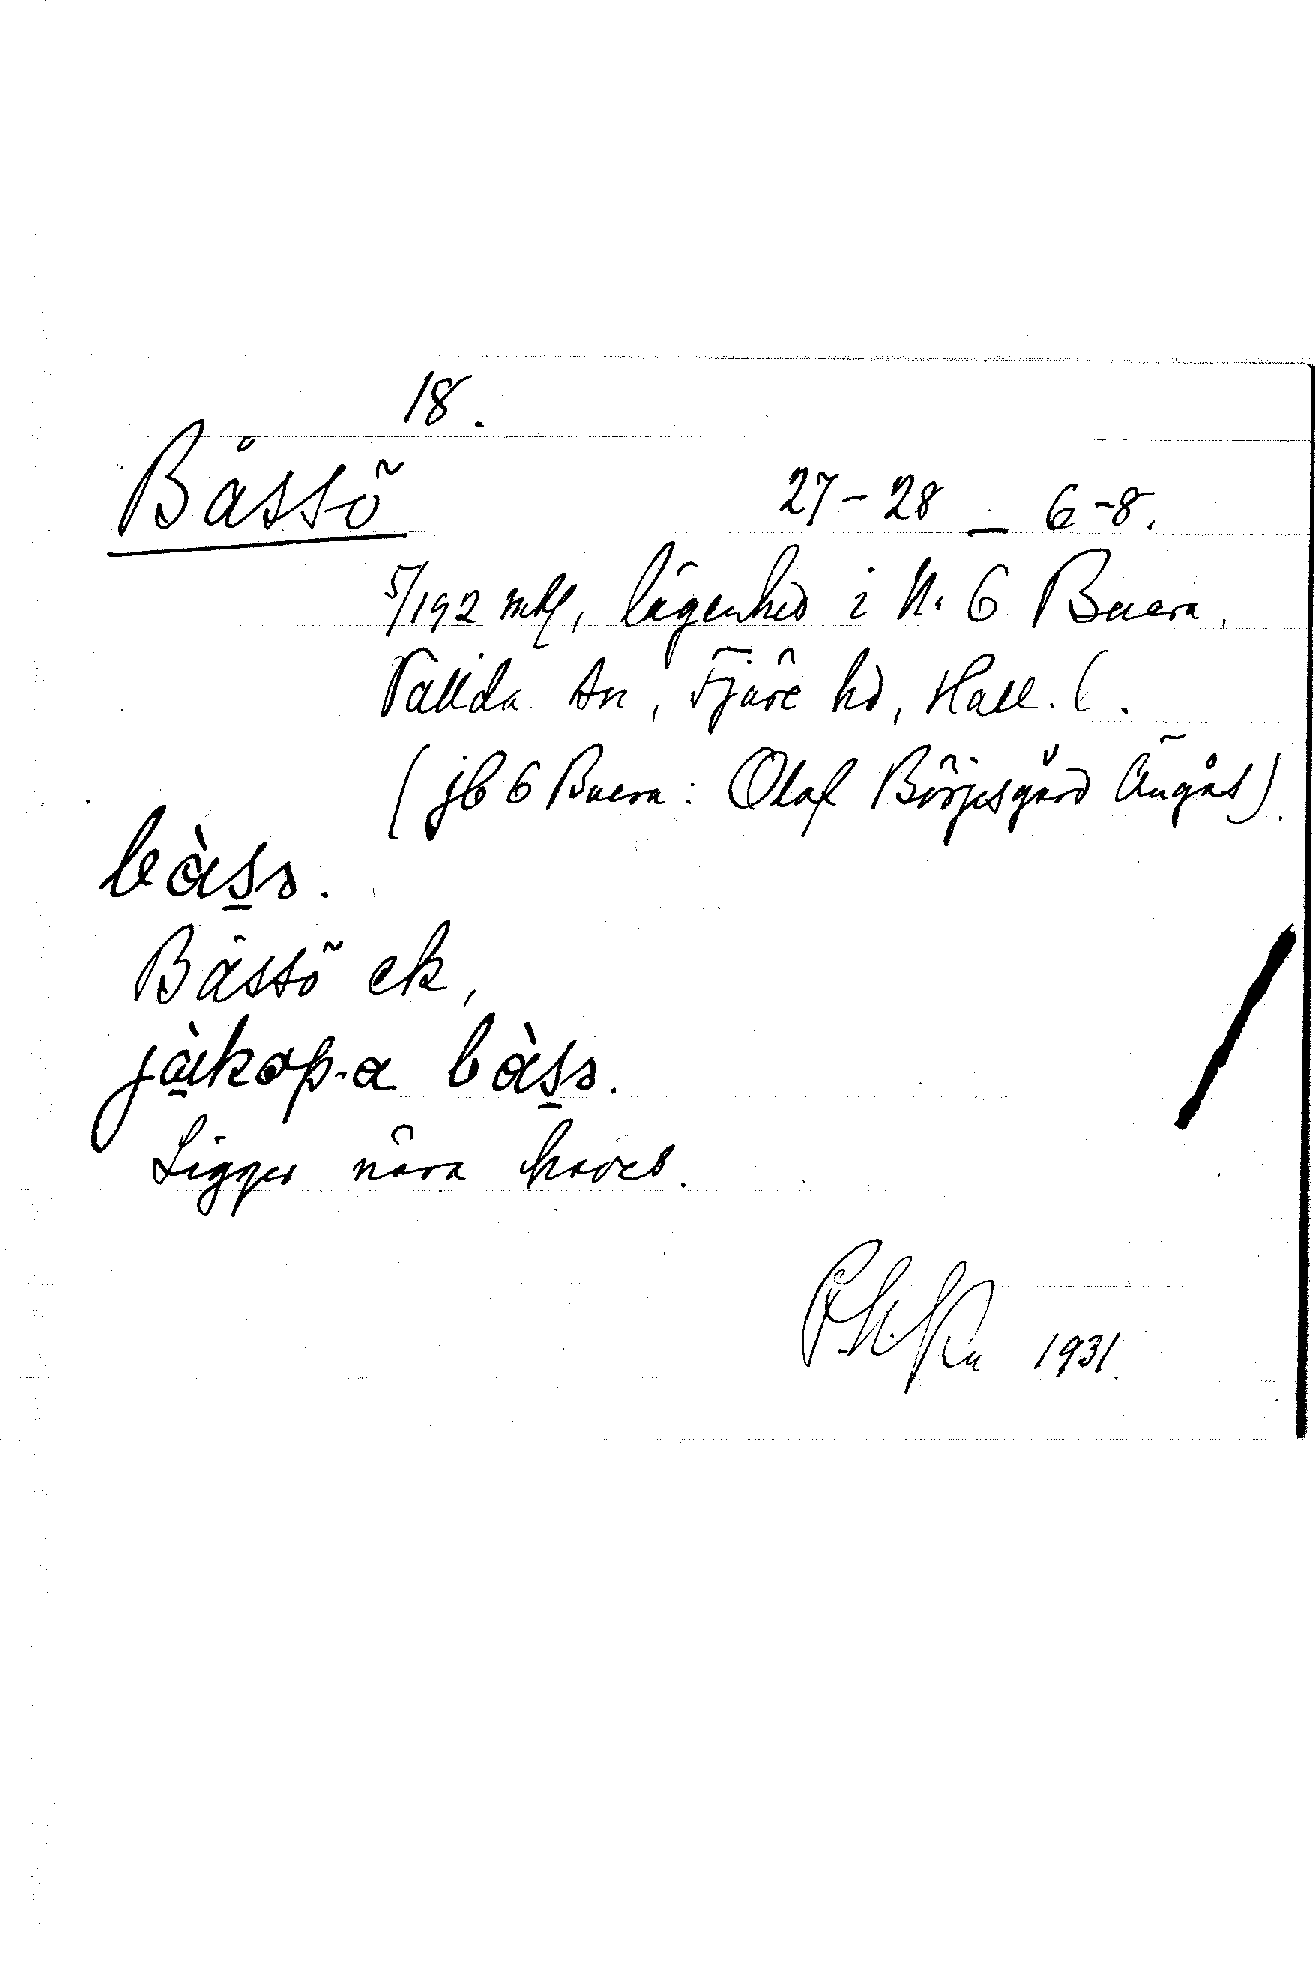 18.
Båssö 27-28 – 6-8.
5/192 mtl, lägenhet i N. 6 Buera,
Vallda sn, Fjäre hd, Hall. l.
(jb 6 Buera: Olof Börjesgård Ängås).
bàs̲ɔ.
Båssö ek,
jà̲kɔp-a bàs̲ɔ.
Ligger nära havet.
1931.